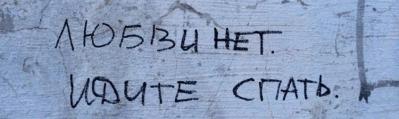 ЛЮБВИ НЕТ.
ИДИТЕ СПАТЬ.